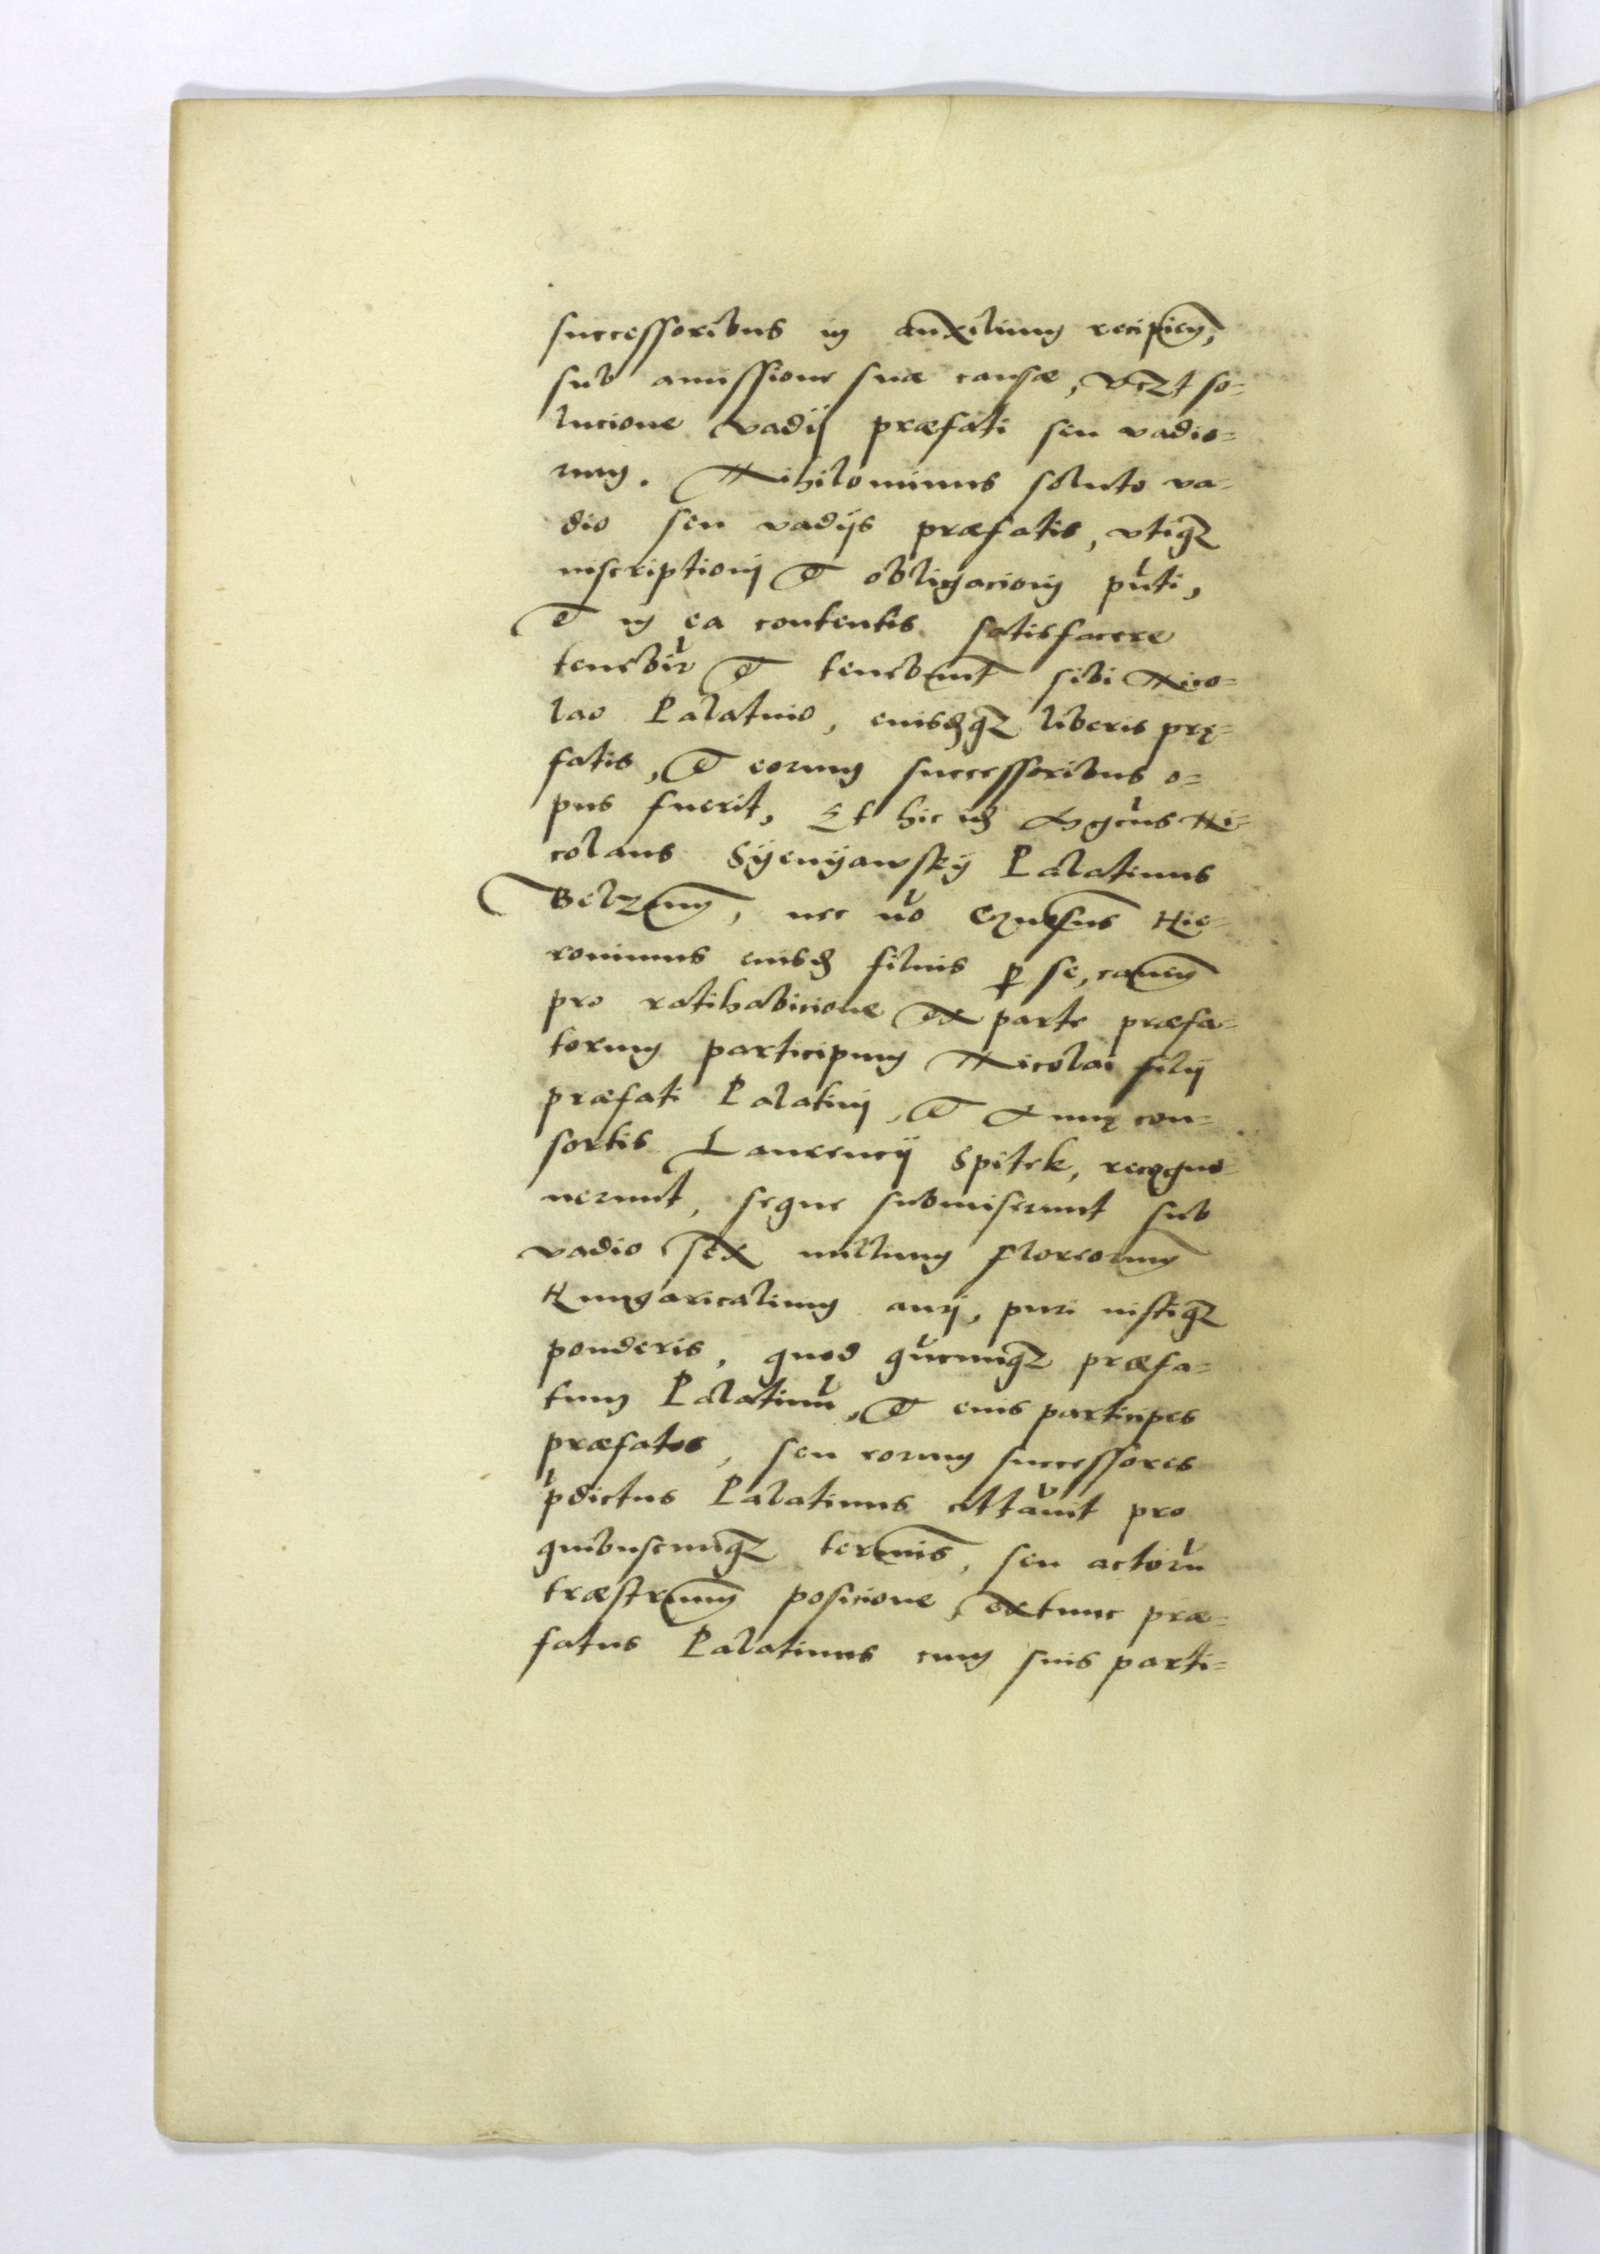 successoribus in auxilium recipien̄,
sub amissione suæ causæ, vezt so=
lucione vadij præfati seu vadio=
rum. Nihilominus soluto va=
dio seu vadijs præfatis, vtiqꝫ
inscriptioni et obligacioni pn̄ti,
et in ea contentis satisfacere
tenebit̄ et tenebunt̄ sibi Nico=
lao Palatino, eiusdqꝫ liberis prę=
fatis, et eorum successoribus o=
pus fuerit, Et hic id Mgcūs Ni=
colaus Syenyawsky Palatinus
Belzen̄, nec nō Gn̄rsus Hie=
ronimus eiusd filius ꝑ se, caven̄
pro ratihabicione ex parte præfa=
torum participum Nicolai filij
præfati Palatini, et Annę con=
sortis Laurencij Spitek, recogno=
uerunt, seque submiserunt sub
vadio sex millium florenorum
Hungaricalium auri, puri iustiqꝫ
ponderis, quod qn̄cunqꝫ præfa=
tum Palatinū, et eius participes
præfatos, seu eorum successores
p̄dictus Palatinus cittāvit pro
quibuscunqꝫ termīnis, seu actorū
træstrenn̄ posicione, extunc præ=
fatus Palatinus cum suis parti=